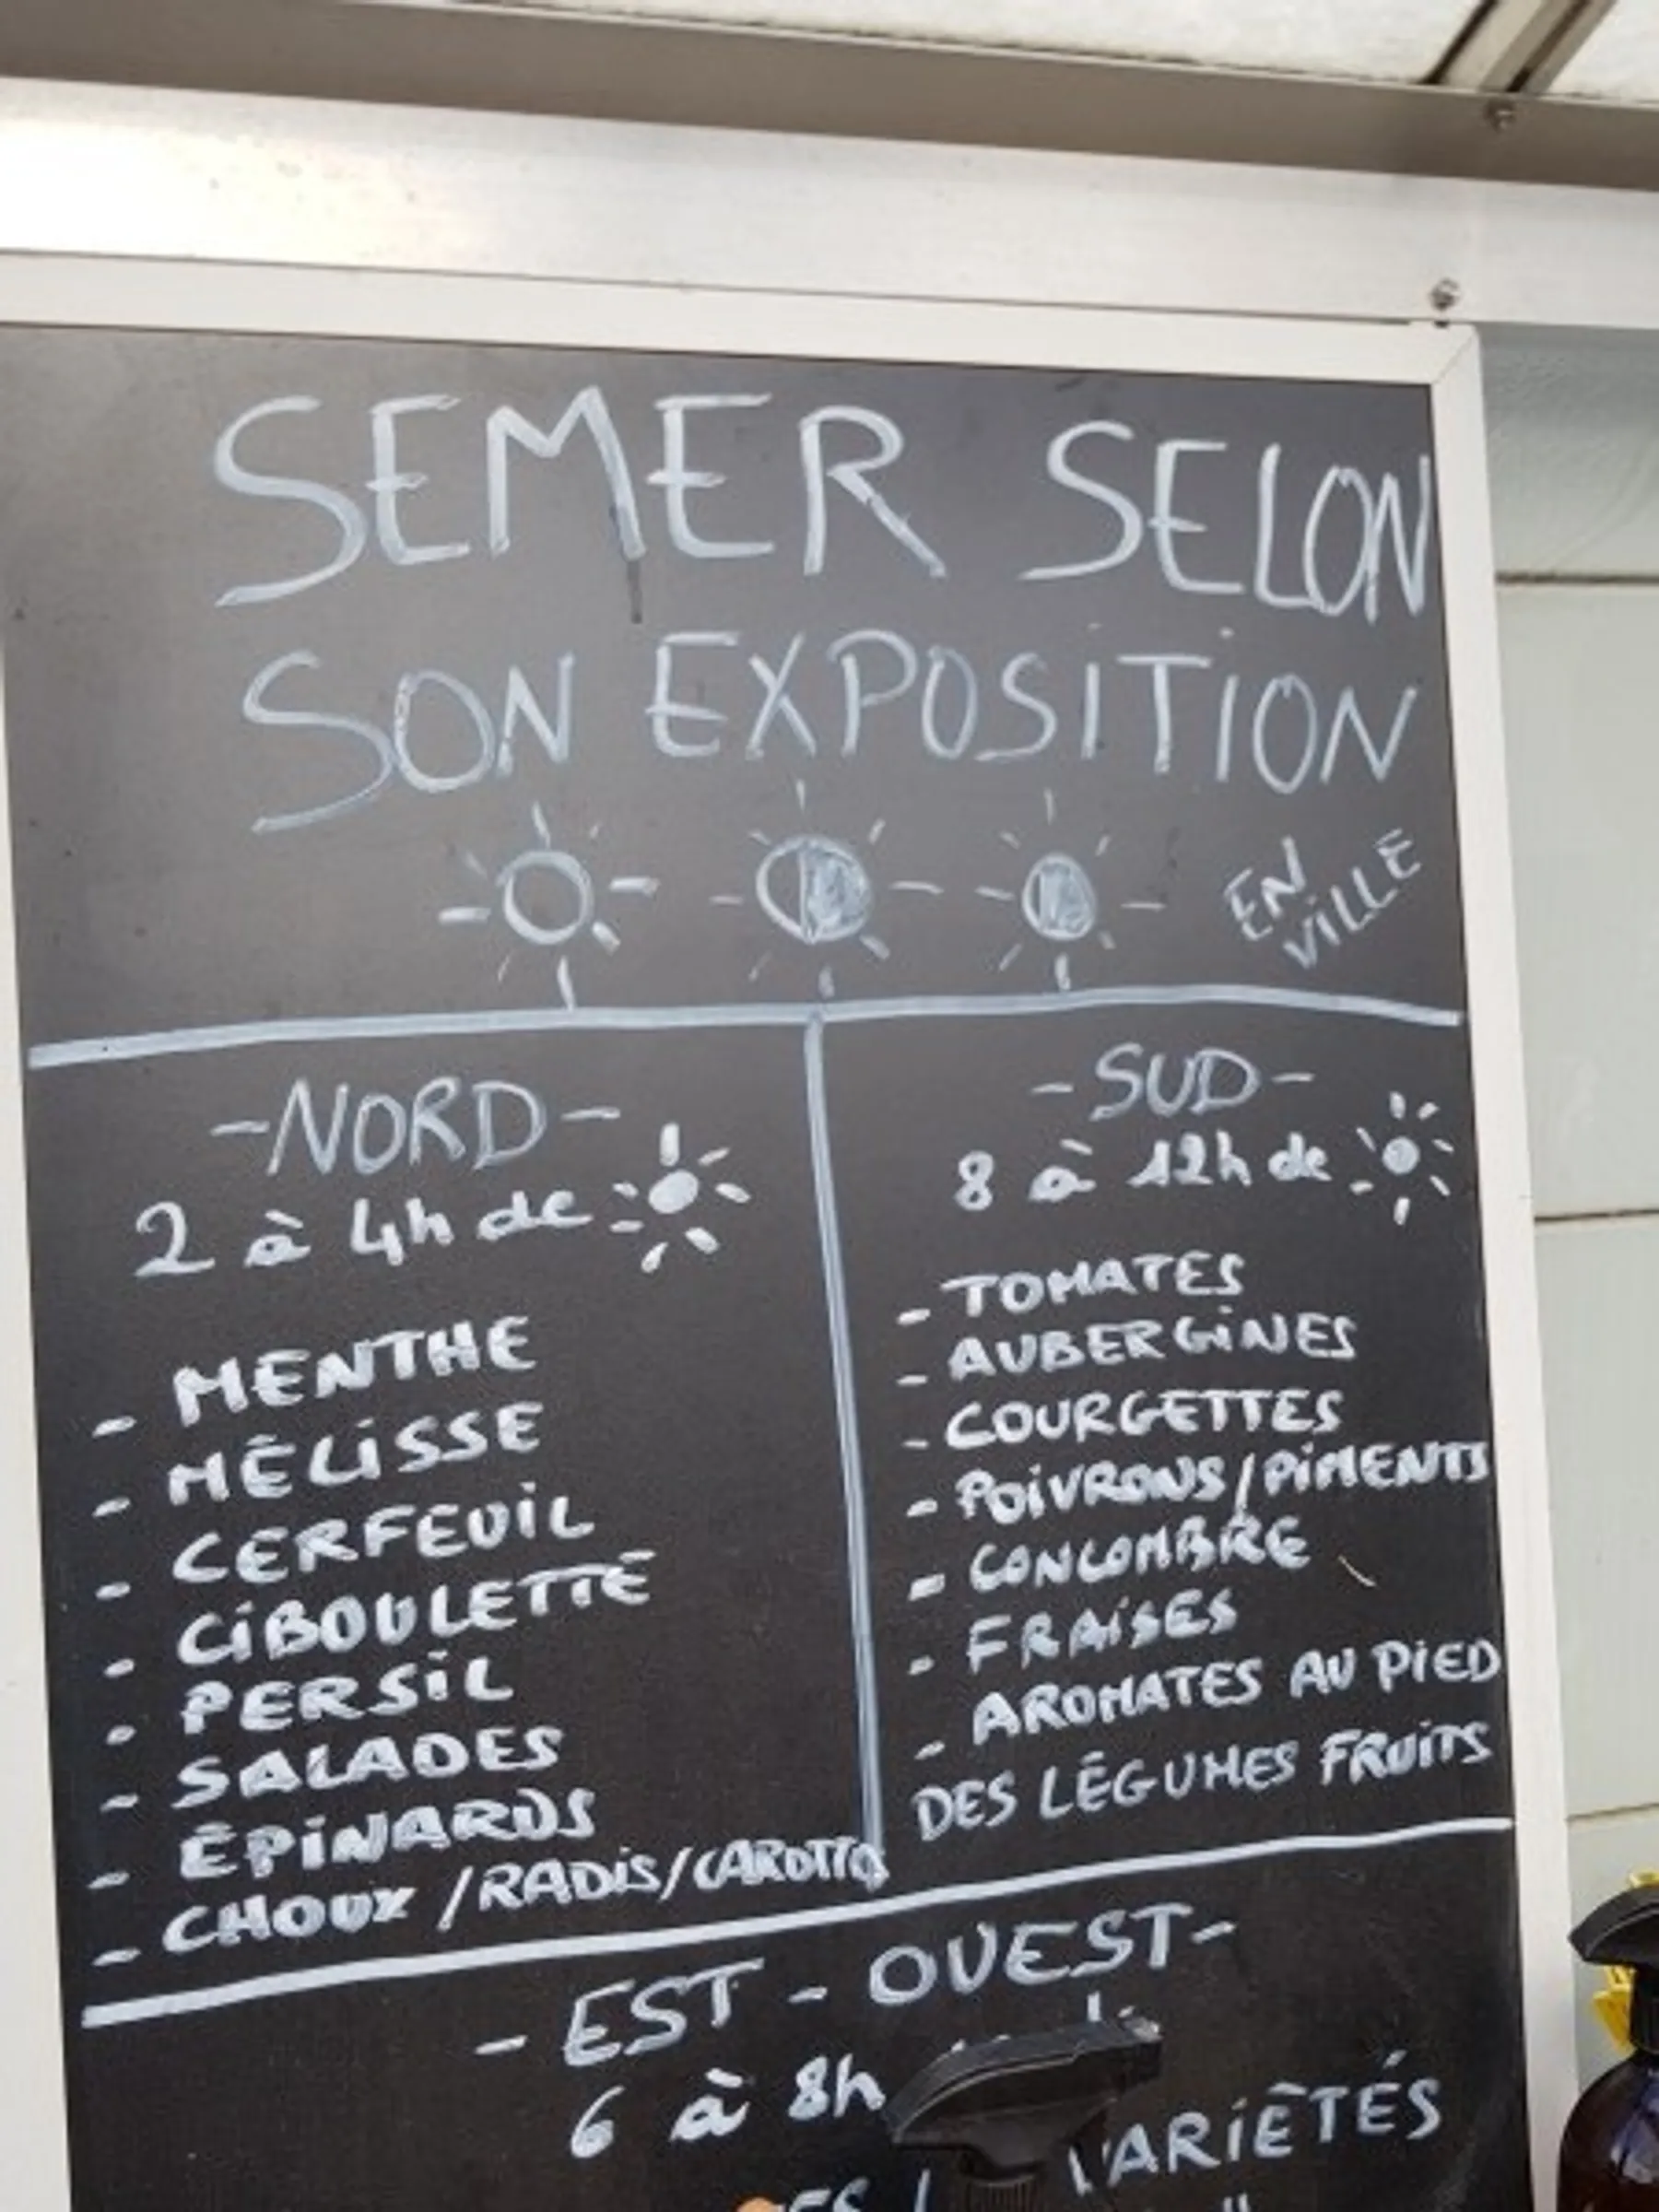 SEMER SELON
SON EXPOSITION
EN
VILLE
-NORD-
2 à 4h de
- MENTHE
- MÉLISSE
- CERFEUIL
- CIBOULETTE
- PERSIL
- SALADES
- ÉPINARDS
- CHOUX /RADIS/CAROTTE
-SUD-
8 à 12h de
- TOMATES
- AUBERGINES
- COURGETTES
- POIVRONS/PIMENTS
- CONCOMBRE
- FRAISES
- AROMATES AU PIED
DES LÉGUMES FRUITS
- EST - OUEST-
6 à 8h
VARIÉTÉS